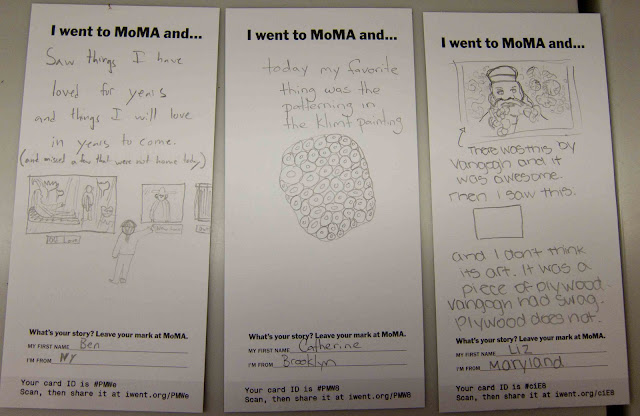 I went to MoMA and...
Saw things I have
loved for years
and things I will love
in years to come.
(and missed a few that were out home today)
Old Love
New Love
What's your story? Leave your mark at MoMA.
MY FIRST NAME Ben
I'M FROM NY
Your card ID is #PMWe
Scan, then share it at iwent.org/PMWe
I went to MoMA and...
today my favorite
thing was the
patterning in
the Klimt painting
What's your story? Leave your mark at MoMA.
MY FIRST NAME Catherine
I'M FROM Brooklyn
Your card ID is #PMW8
Scan, then share it at iwent.org/PMW8
I went to MoMA and...
There was this by
Vangogh and it
was awesome.
Then I saw this:
and I don't think
its art. It was a
piece of plywood.
Vangogh had swag.
Plywood does not.
What's your story? Leave your mark at MoMA.
MY FIRST NAME LIZ
I'M FROM Maryland
Your card ID is #ciE8
Scan, then share it at iwent.org/ciE8